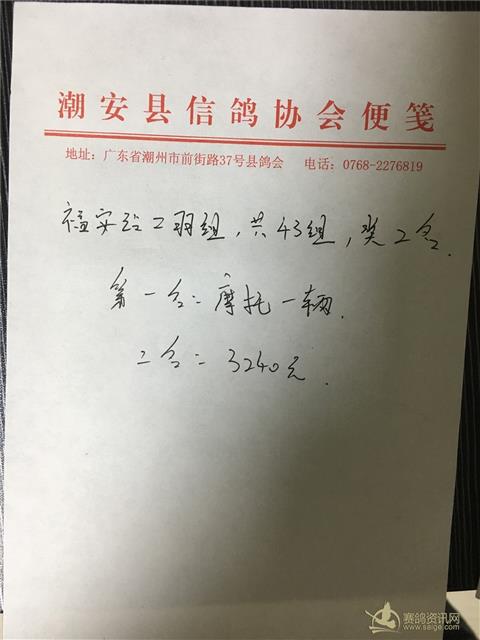 潮安县信鸽协会便笺
地址：广东省潮州市前街路37号县鸽会 电话：0768-2276819
福安站2羽组，共43组，奖2名.
第一名：摩托一辆.
二名：3240元.
赛鸽资讯网
www.saige.com